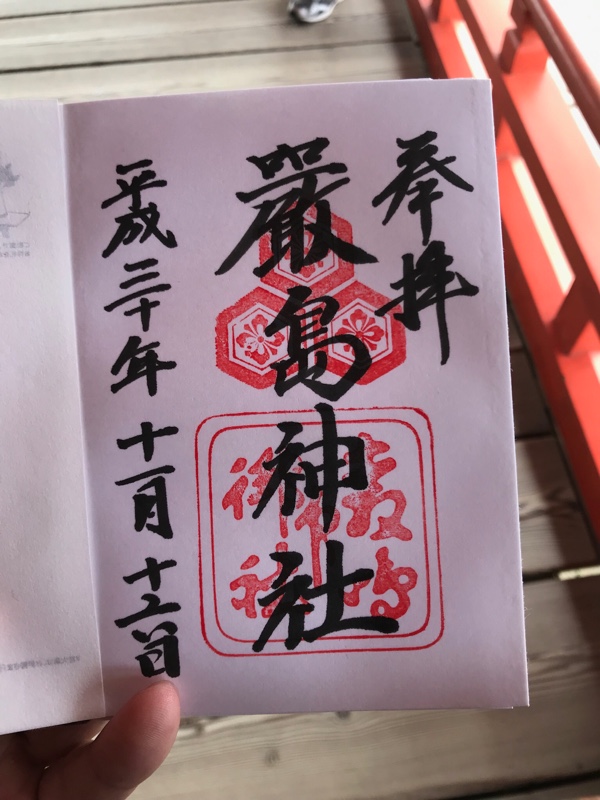 奉拝
嚴島神社
平成三十年十一月十六日